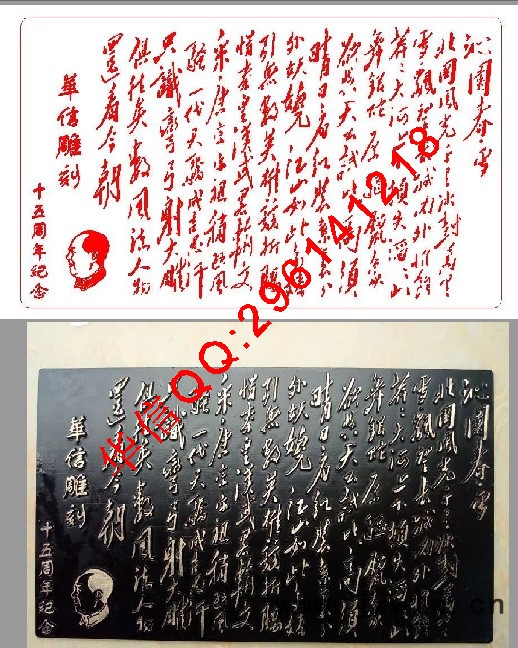 沁園春雪
北國風光千里冰封萬里
雪飄望長城内外惟餘
莽莽大河上下頓失滔滔山
舞銀蛇原馳蠟象
欲與天公試比高須
晴日看紅裝素裹分
外妖嬈江山如此多嬌
引無數英雄競折腰
惜秦皇漢武略輸文
采唐宗宋祖稍遜風
騷一代天驕成吉思汗
只識彎弓射大雕
俱往矣數風流人物
還看今朝
華信雕刻
十五周年紀念
华信QQ:296141218
沁園春雪
北國風光千里冰封萬里
雪飄望長城内外惟餘
莽莽大河上下頓失滔滔山
舞銀蛇原馳蠟象
欲與天公試比高須
晴日看紅裝素裹分
外妖嬈江山如此多嬌
引無數英雄競折腰
惜秦皇漢武略輸文
采唐宗宋祖稍遜風
騷一代天驕成吉思汗
只識彎弓射大雕
俱往矣數風流人物
還看今朝
華信雕刻
十五周年紀念